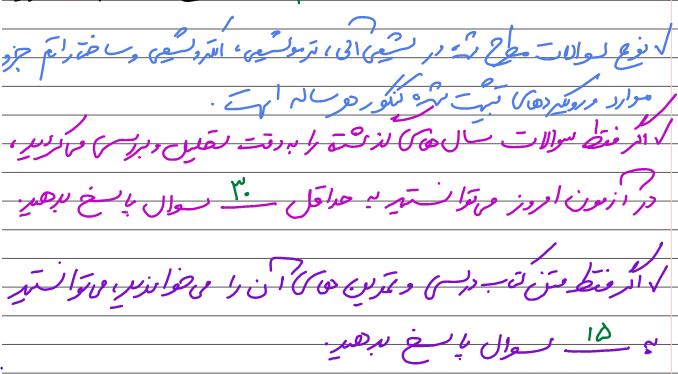 ✓ نوع سوالات مطرح شده در شیمی آلی، ترموشیمی، الکتروشیمی و ساختار اتم جزو
موارد و رویکردهای تثبیت شده کنکور هر ساله است.
✓ اگر فقط سوالات سال های گذشته را به دقت تحلیل و بررسی می کردید،
در آزمون امروز می توانستید به حداقل ۳۰ سوال پاسخ بدهید.
✓ اگر فقط متن کتاب درسی و تمرین های آن را می خواندید، می توانستید
به ۱۵ سوال پاسخ بدهید.